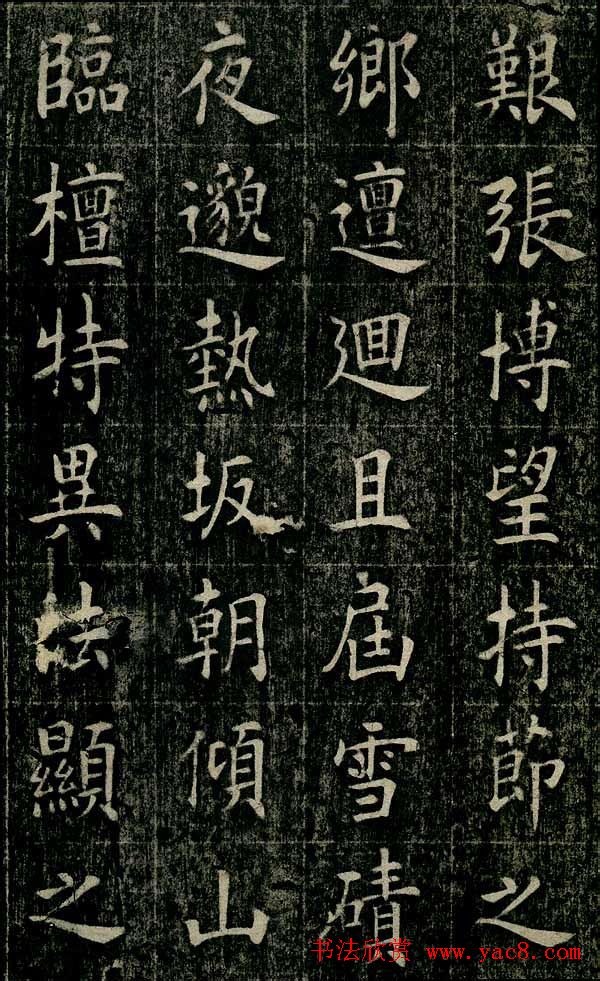 艱張博望持節之
鄉邅迴且屆雪磧
夜邈熱坂朝傾山
臨檀特異法顯之
书法欣赏 www.yac8.com